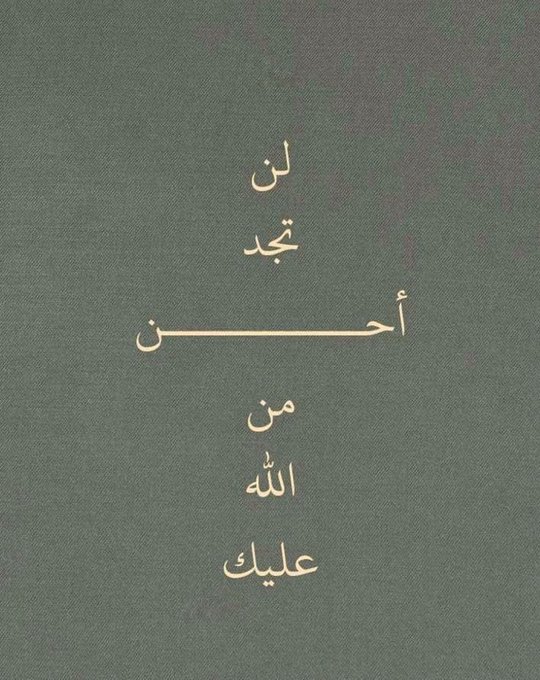 لن
تجد
أحـــــــــــــن
من
الله
عليك